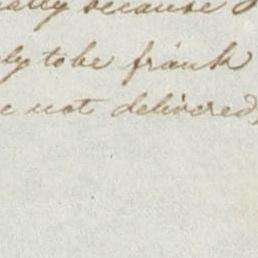 because
to be frank
not delivered,